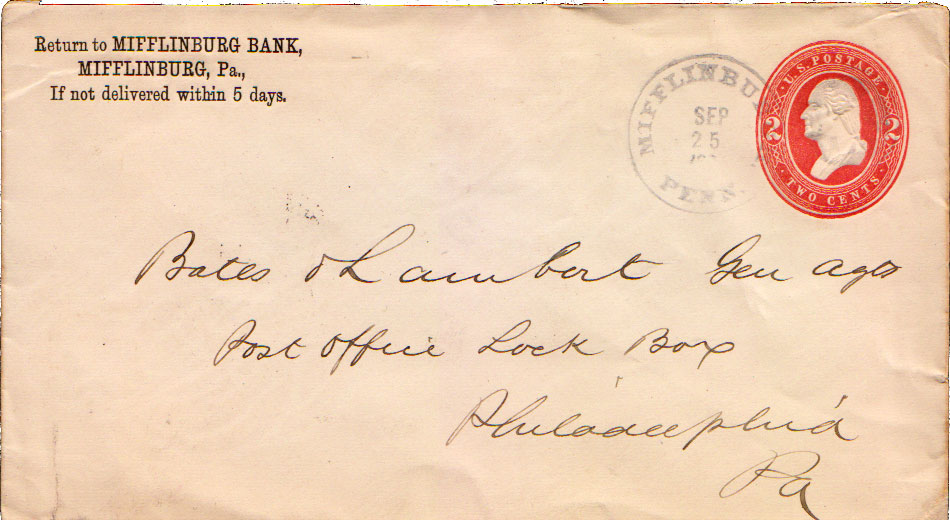 Return to MIFFLINBURG BANK,
MIFFLINBURG, Pa.,
If not delivered within 5 days.
MIFFLINBU
SEP
25
PENN
U.S. POSTAGE
2 2
TWO CENTS
Bates & Lambert Gen Agts
Post Office Lock Box
Philadelphia
Pa